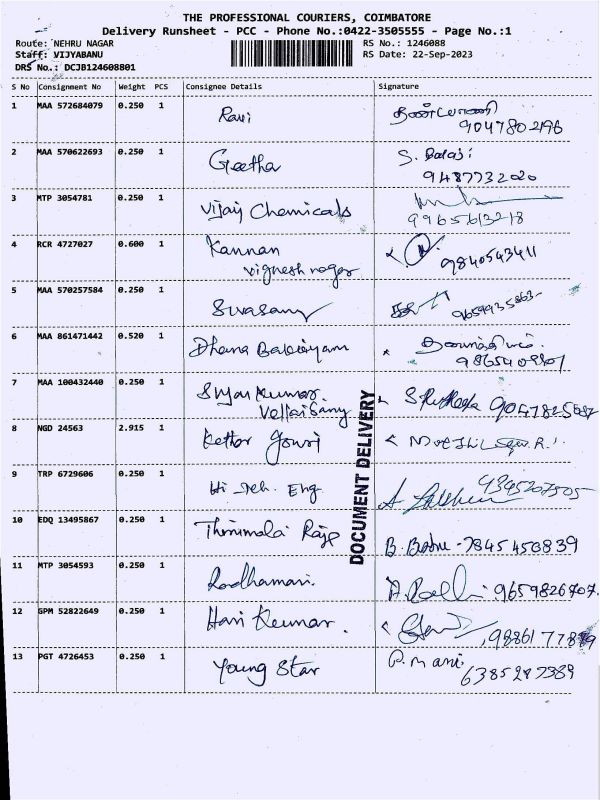 THE PROFESSIONAL COURIERS, COIMBATORE
Delivery Runsheet - PCC - Phone No.:0422-3505555 - Page No.:1
Route: NEHRU NAGAR RS No.: 1246088
Staff: VIJYABANU RS Date: 22-Sep-2023
DRS No.: DCJB124608801
S No Consignment No Weight PCS Consignee Details Signature
1 MAA 572684079 0.250 1 Ravi
9047802196
2 MAA 570622693 0.250 1 Geetha S. Balaji
9487732020
3 MTP 3054781 0.250 1 Vijay Chemicals
9965613218
4 RCR 4727027 0.600 1 Kannan 9840543411
vignesh nagar
5 MAA 570257584 0.250 1
6 MAA 861471442 0.520 1 Dhana
7 MAA 100432440 0.250 1
8 NGD 24563 2.915 1
9 TRP 6729606 0.250 1 Hi Teh. Eng 9345207505
10 EDQ 13495867 0.250 1 B. Babu - 7845450839
11 MTP 3054593 0.250 1 Radhamani. 9659826707.
12 GPM 52822649 0.250 1 Hari Kumar.
13 PGT 4726453 0.250 1 Young Star P. mani
6385287389
DOCUMENT DELIVERY